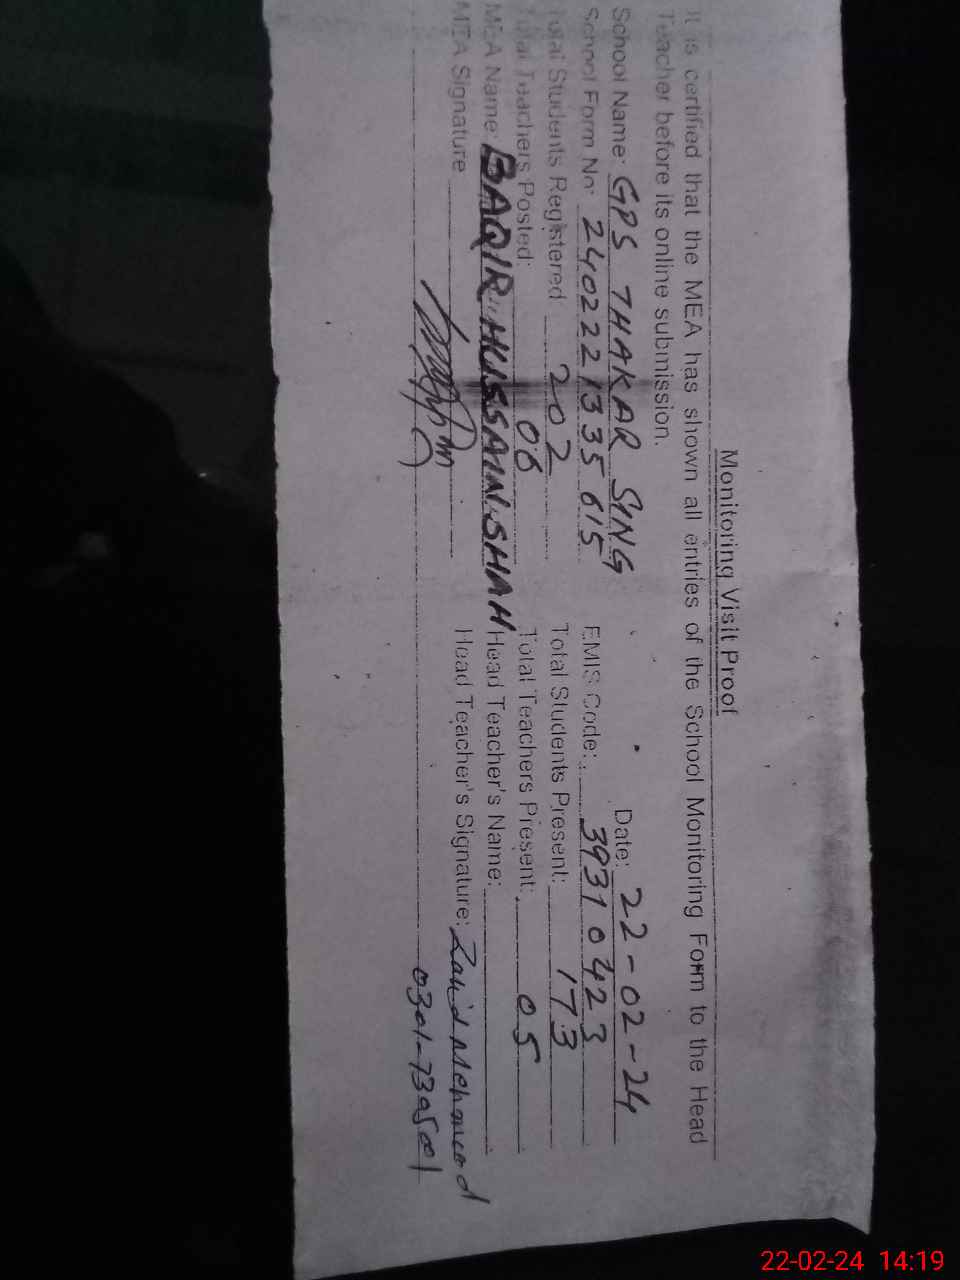 Monitoring Visit Proof
It is certified that the MEA has shown all entries of the School Monitoring Form to the Head
Teacher before its online submission.
School Name: GPS THAKAR SING Date: 22-02-24
School Form No: 2402221335615 EMIS Code: 39310423
Total Students Registered 202 Total Students Present: 173
Total Teachers Posted: 06 Total Teachers Present: 05
MEA Name: BAQIR HUSSAIN SHAH Head Teacher's Name:
MEA Signature Head Teacher's Signature: Zahid Mehmood
22-02-24 14:19